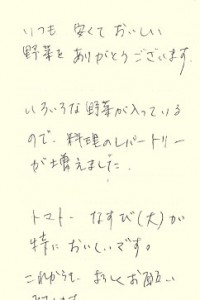 いつも 安くて おいしい
野菜を ありがとうございます.
いろいろな野菜が入っている
ので、料理のレパートリー
が増えました.
トマト、なすび(大)が
特に おいしいです。
これからも よろしくお願い